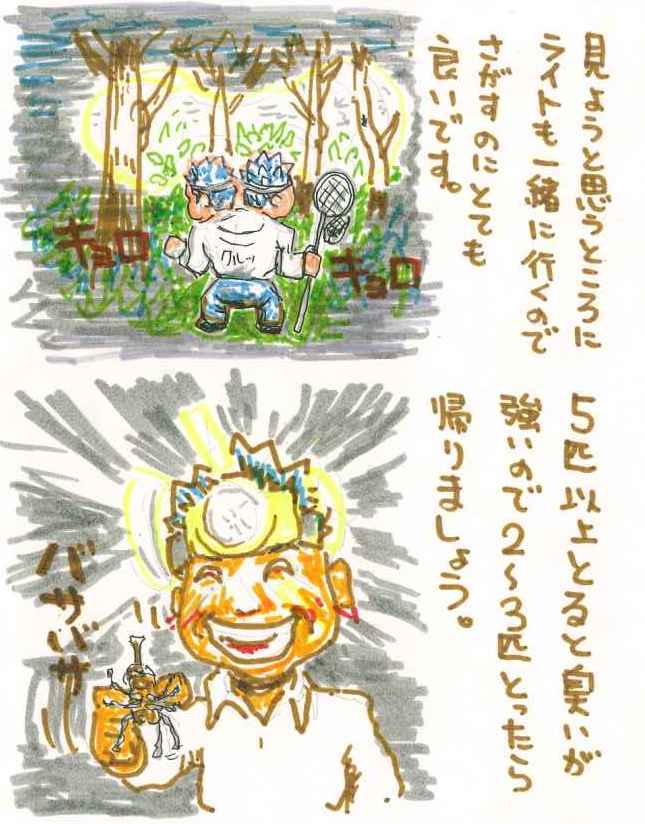 見ようと思うところに
ライトも一緒に行くので
さがすのにとても
良いです。
キョロ
キョロ
クルッ
5匹以上とると臭いが
強いので2〜3匹とったら
帰りましょう。
バサバサ